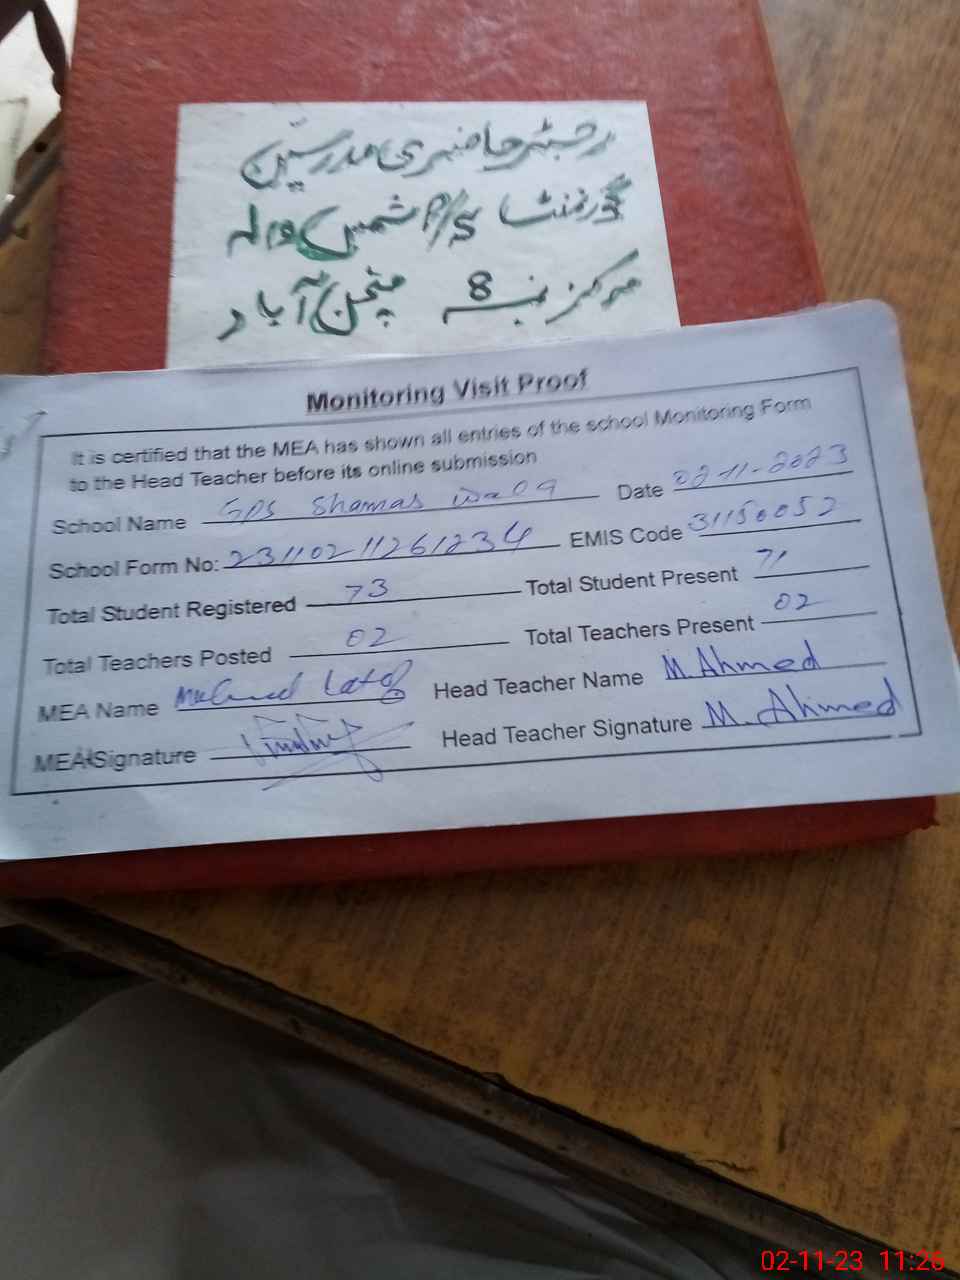 رجسٹر حاضری مدرسین
گورنمنٹ P/S شمس والہ
مرکز نمبر 8 منچن آباد
Monitoring Visit Proof
It is certified that the MEA has shown all entries of the school Monitoring Form
to the Head Teacher before its online submission
School Name GPS Shamas Wala Date 02-11-2023
School Form No: 23110211261234 EMIS Code 31150052
Total Student Registered 73 Total Student Present 71
Total Teachers Posted 02 Total Teachers Present 02
MEA Name Latif Head Teacher Name M. Ahmed
MEA Signature Head Teacher Signature M. Ahmed
02-11-23 11:26